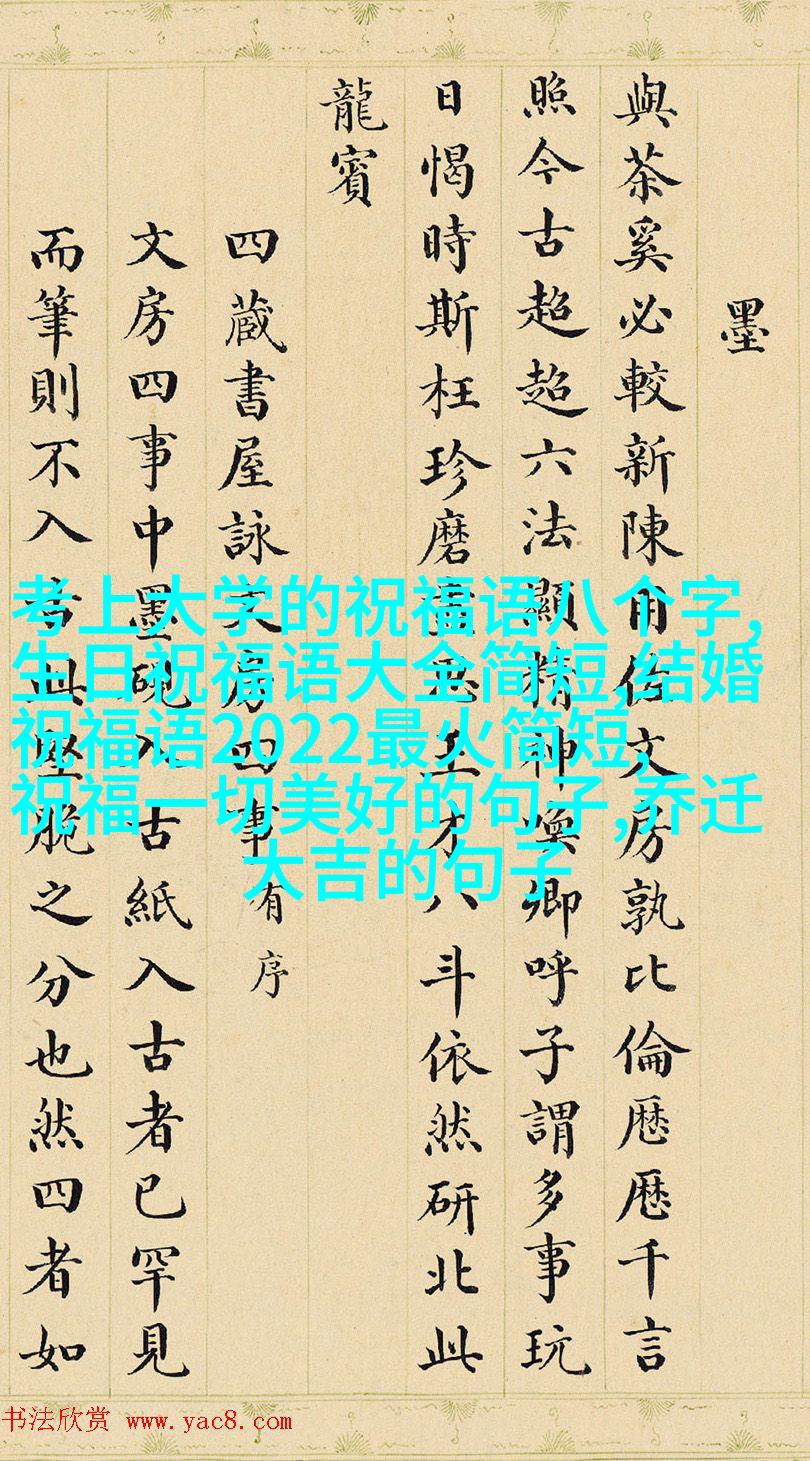 墨
與茶奚必較新陳用佐文房孰比倫歷歷千言
照今古超超六法顯精神喚卿呼子謂多事玩
日愒時斯枉珍磨思王才八斗依然研北此
龍賓
四蔵書屋詠文房四事有序
文房四事中墨硯入古紙入古者已罕見
而筆則不入古此堅脆之分也然四者如
考上大学的祝福语八个字,
生日祝福语大全简短,结婚
祝福语2022最火简短,
祝福一切美好的句子,乔迁
大吉的句子
书法欣赏 www.yac8.com